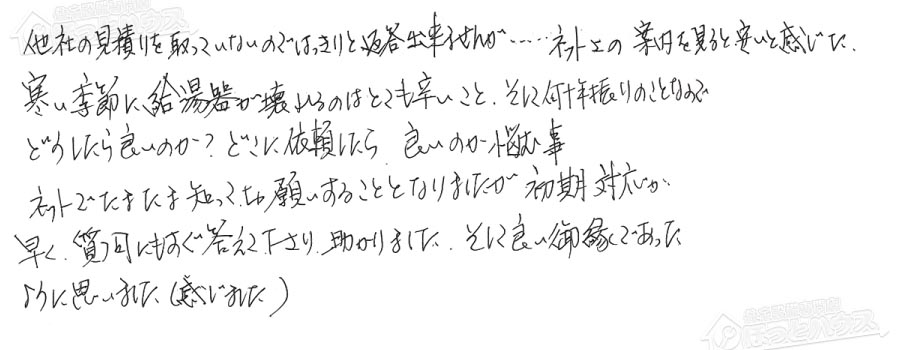 他社の見積りを取っていないのではっきりと返答出来ませんが……ネット上の案内を見ると安いと感じた.
寒い季節に、給湯器が壊れるのはとても辛いこと.そして何十年振りのことなので
どうしたら良いのか?どこに依頼したら 良いのか悩む事
ネットでたまたま知ってお願いすることとなりましたが 初期対応が
早く.質問にもすぐ答えて下さり.助かりました.そして良い御縁であった
ように思いました(感じました)
ほっとハウス